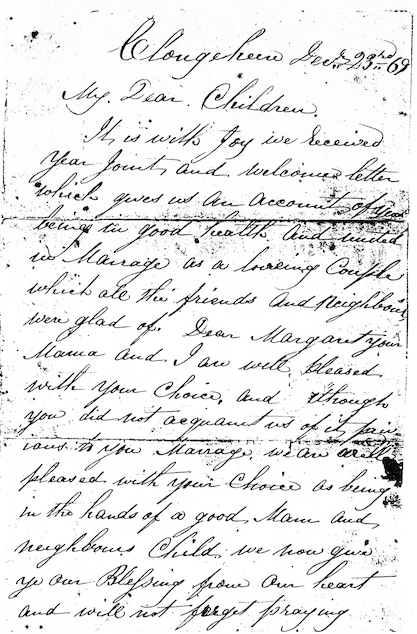 Clongeheen Decr 23rd 69
My Dear Children.
It is with Joy we received
year Joint and welcome letter
which gives us an account of you
being in good health and united
in Marrage as a loveing Couple
which all the friends and neighbours
were glad of. Dear Margaret your
Mama and I are well pleased
with your Choice, and though
you did not acquant us of it priv-
ious to you Marrage, we are well
pleased with your Choice as being
in the hands of a good Mam and
neighbours Child, we now give
ye our Blessing from our heart
and will not forget praying